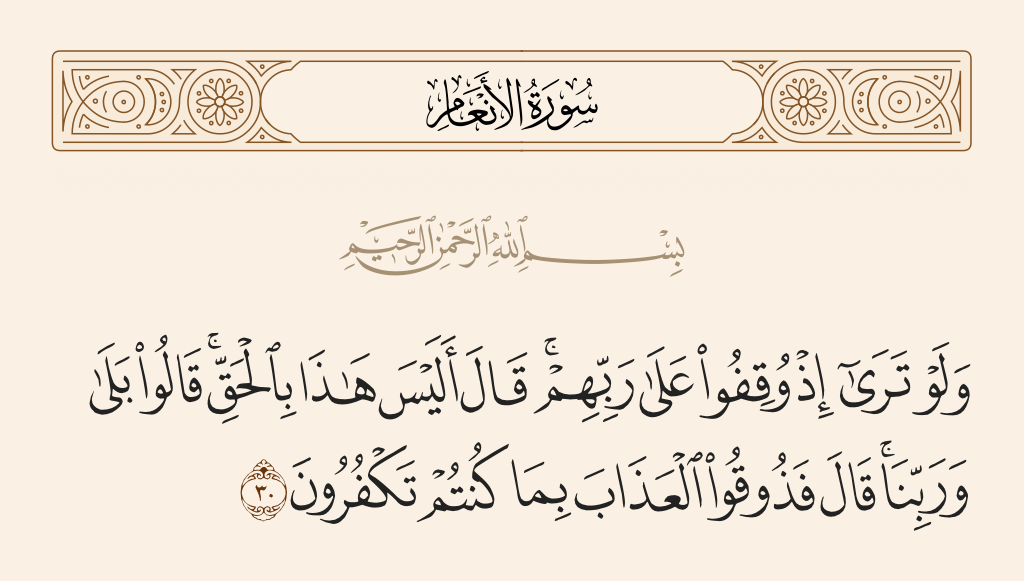 سُورَةُ الأَنْعَامِ
بِسْمِ ٱللَّهِ ٱلرَّحْمَٰنِ ٱلرَّحِيمِ
وَلَوْ تَرَىٰٓ إِذْ وُقِفُوا۟ عَلَىٰ رَبِّهِمْ ۚ قَالَ أَلَيْسَ هَٰذَا بِٱلْحَقِّ ۚ قَالُوا۟ بَلَىٰ
وَرَبِّنَا ۚ قَالَ فَذُوقُوا۟ ٱلْعَذَابَ بِمَا كُنتُمْ تَكْفُرُونَ ٣٠